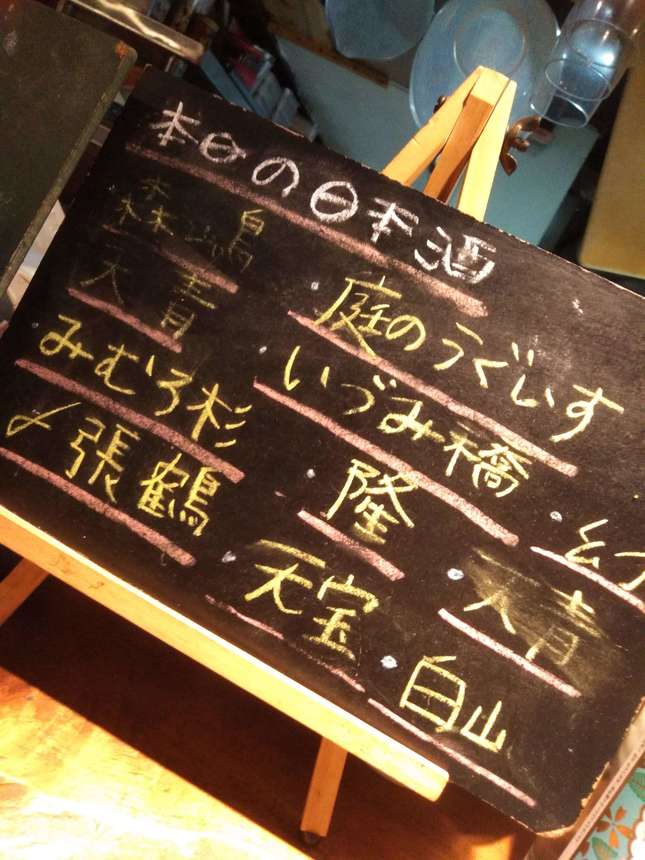 本日の日本酒
天青
みむろ杉
〆張鶴
庭のうぐいす
いづみ橋
隆
幻
天宝
天青
白山